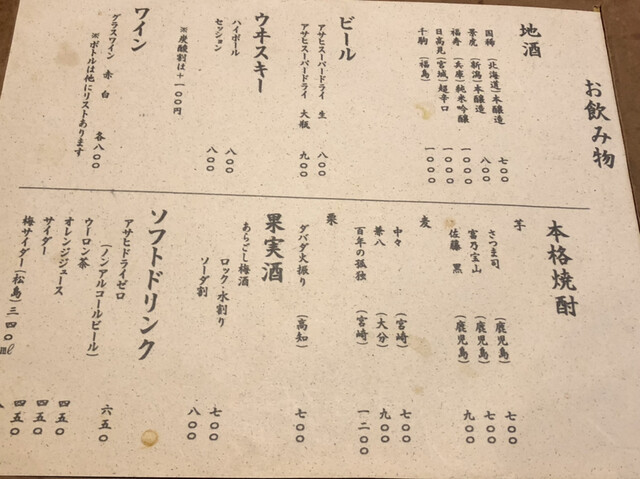 お飲み物
地酒
国稀 (北海道)本醸造 七〇〇
景虎 (新潟)本醸造 八〇〇
福寿 (兵庫)純米吟醸 一〇〇〇
日高見(宮城)超辛口 一〇〇〇
千駒 (福島) 一〇〇〇
ビール
アサヒスーパードライ 生 八〇〇
アサヒスーパードライ 大瓶 九〇〇
ウヰスキー
ハイボール 八〇〇
セッション 八〇〇
※炭酸割は+一〇〇円
ワイン
グラスワイン 赤 白 各八〇〇
※ボトルは他にリストあります
本格焼酎
芋
さつま司 (鹿児島) 七〇〇
富乃宝山 (鹿児島) 七〇〇
佐藤 黒 (鹿児島) 九〇〇
麦
中々 (宮崎) 七〇〇
兼八 (大分) 九〇〇
百年の孤独 (宮崎) 一二〇〇
栗
ダバダ火振り (高知) 七〇〇
果実酒
あらごし梅酒
ロック・水割り 七〇〇
ソーダ割 八〇〇
ソフトドリンク
アサヒドライゼロ
(ノンアルコールビール) 六五〇
ウーロン茶 四五〇
オレンジジュース 四五〇
サイダー 四五〇
梅サイダー(松島)三四〇㎖